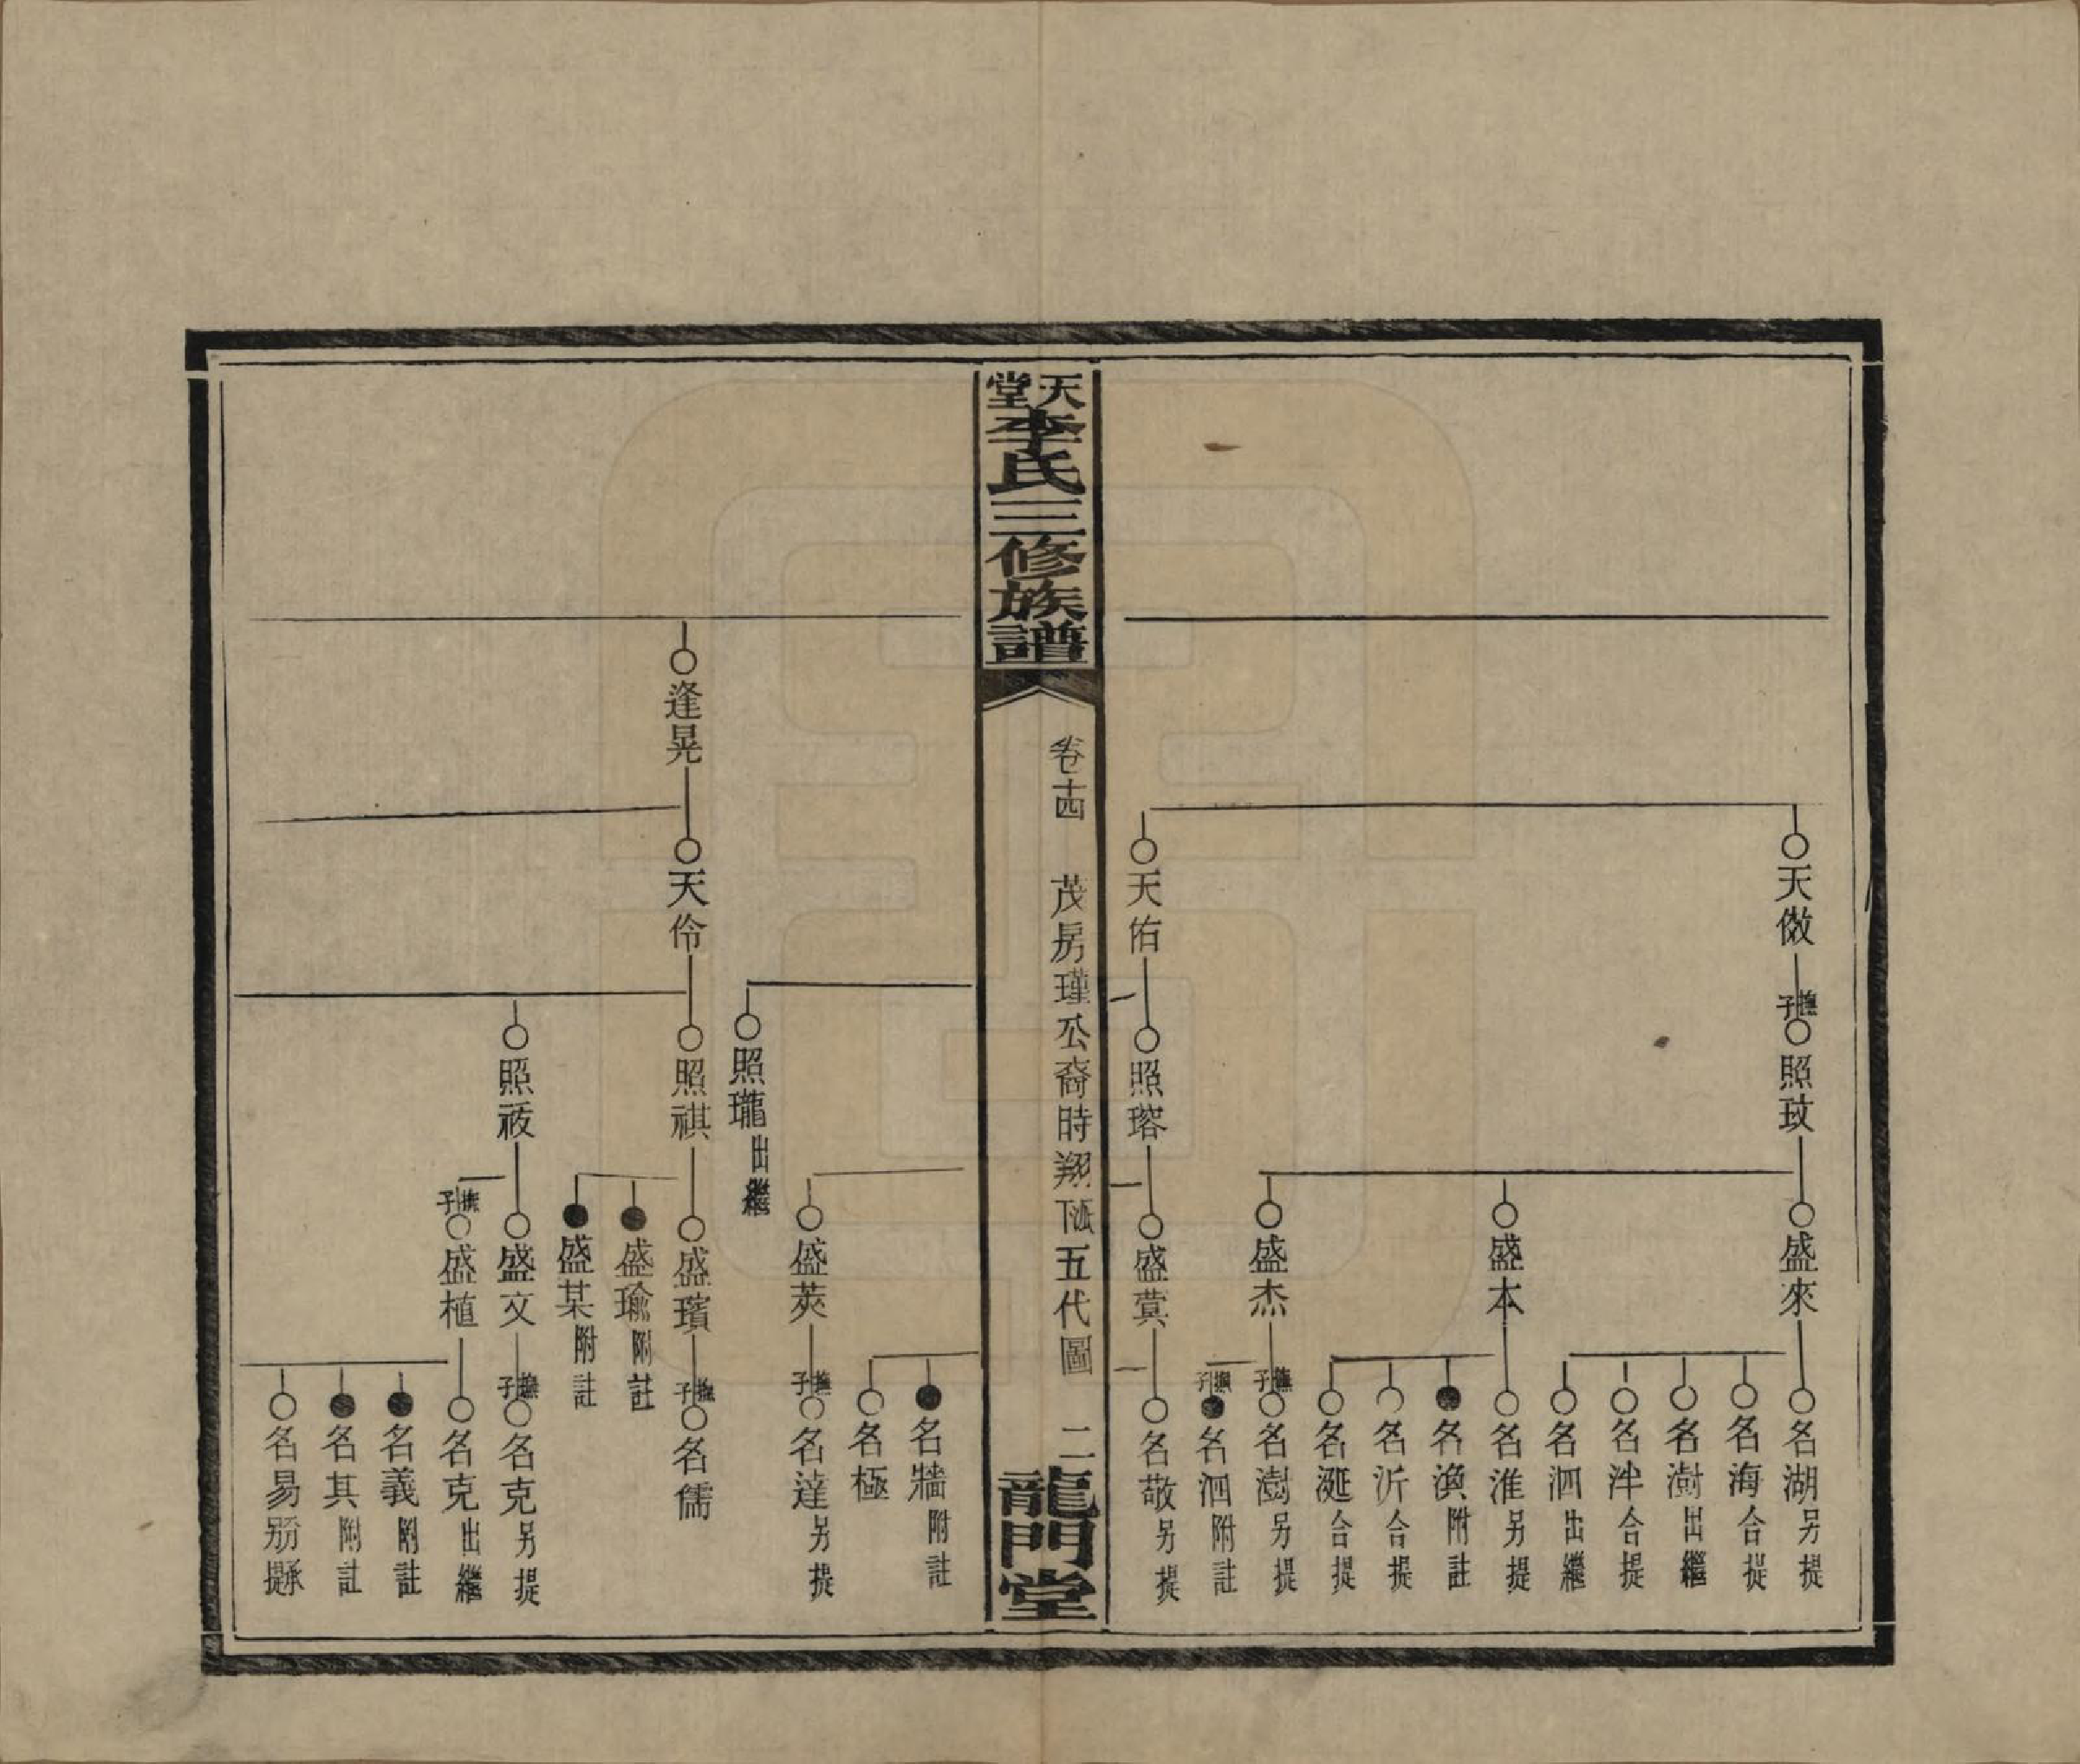 天倣
撫子
照玟
盛來
名湖另提
名海合提
名澍出繼
名泮合提
名泗出繼
盛本
名淮另提
名渙附註
名沂合提
名涎合提
盛杰
撫子
名澍另提
撫子
名泗附註
天佑
照瑢
盛蓂
名敬另提
天堂李氏三修族譜
卷十四
茂房瑾公裔時翔下派五代圖
二
龍門堂
名牆附註
名極
盛莢
撫子
名達另提
照瓏出繼
逢晃
天伶
照祺
盛璸
撫子
名儒
盛瑜附註
盛某附註
照祓
盛文
撫子
名克另提
撫子
盛植
名克出繼
名義附註
名其附註
名易